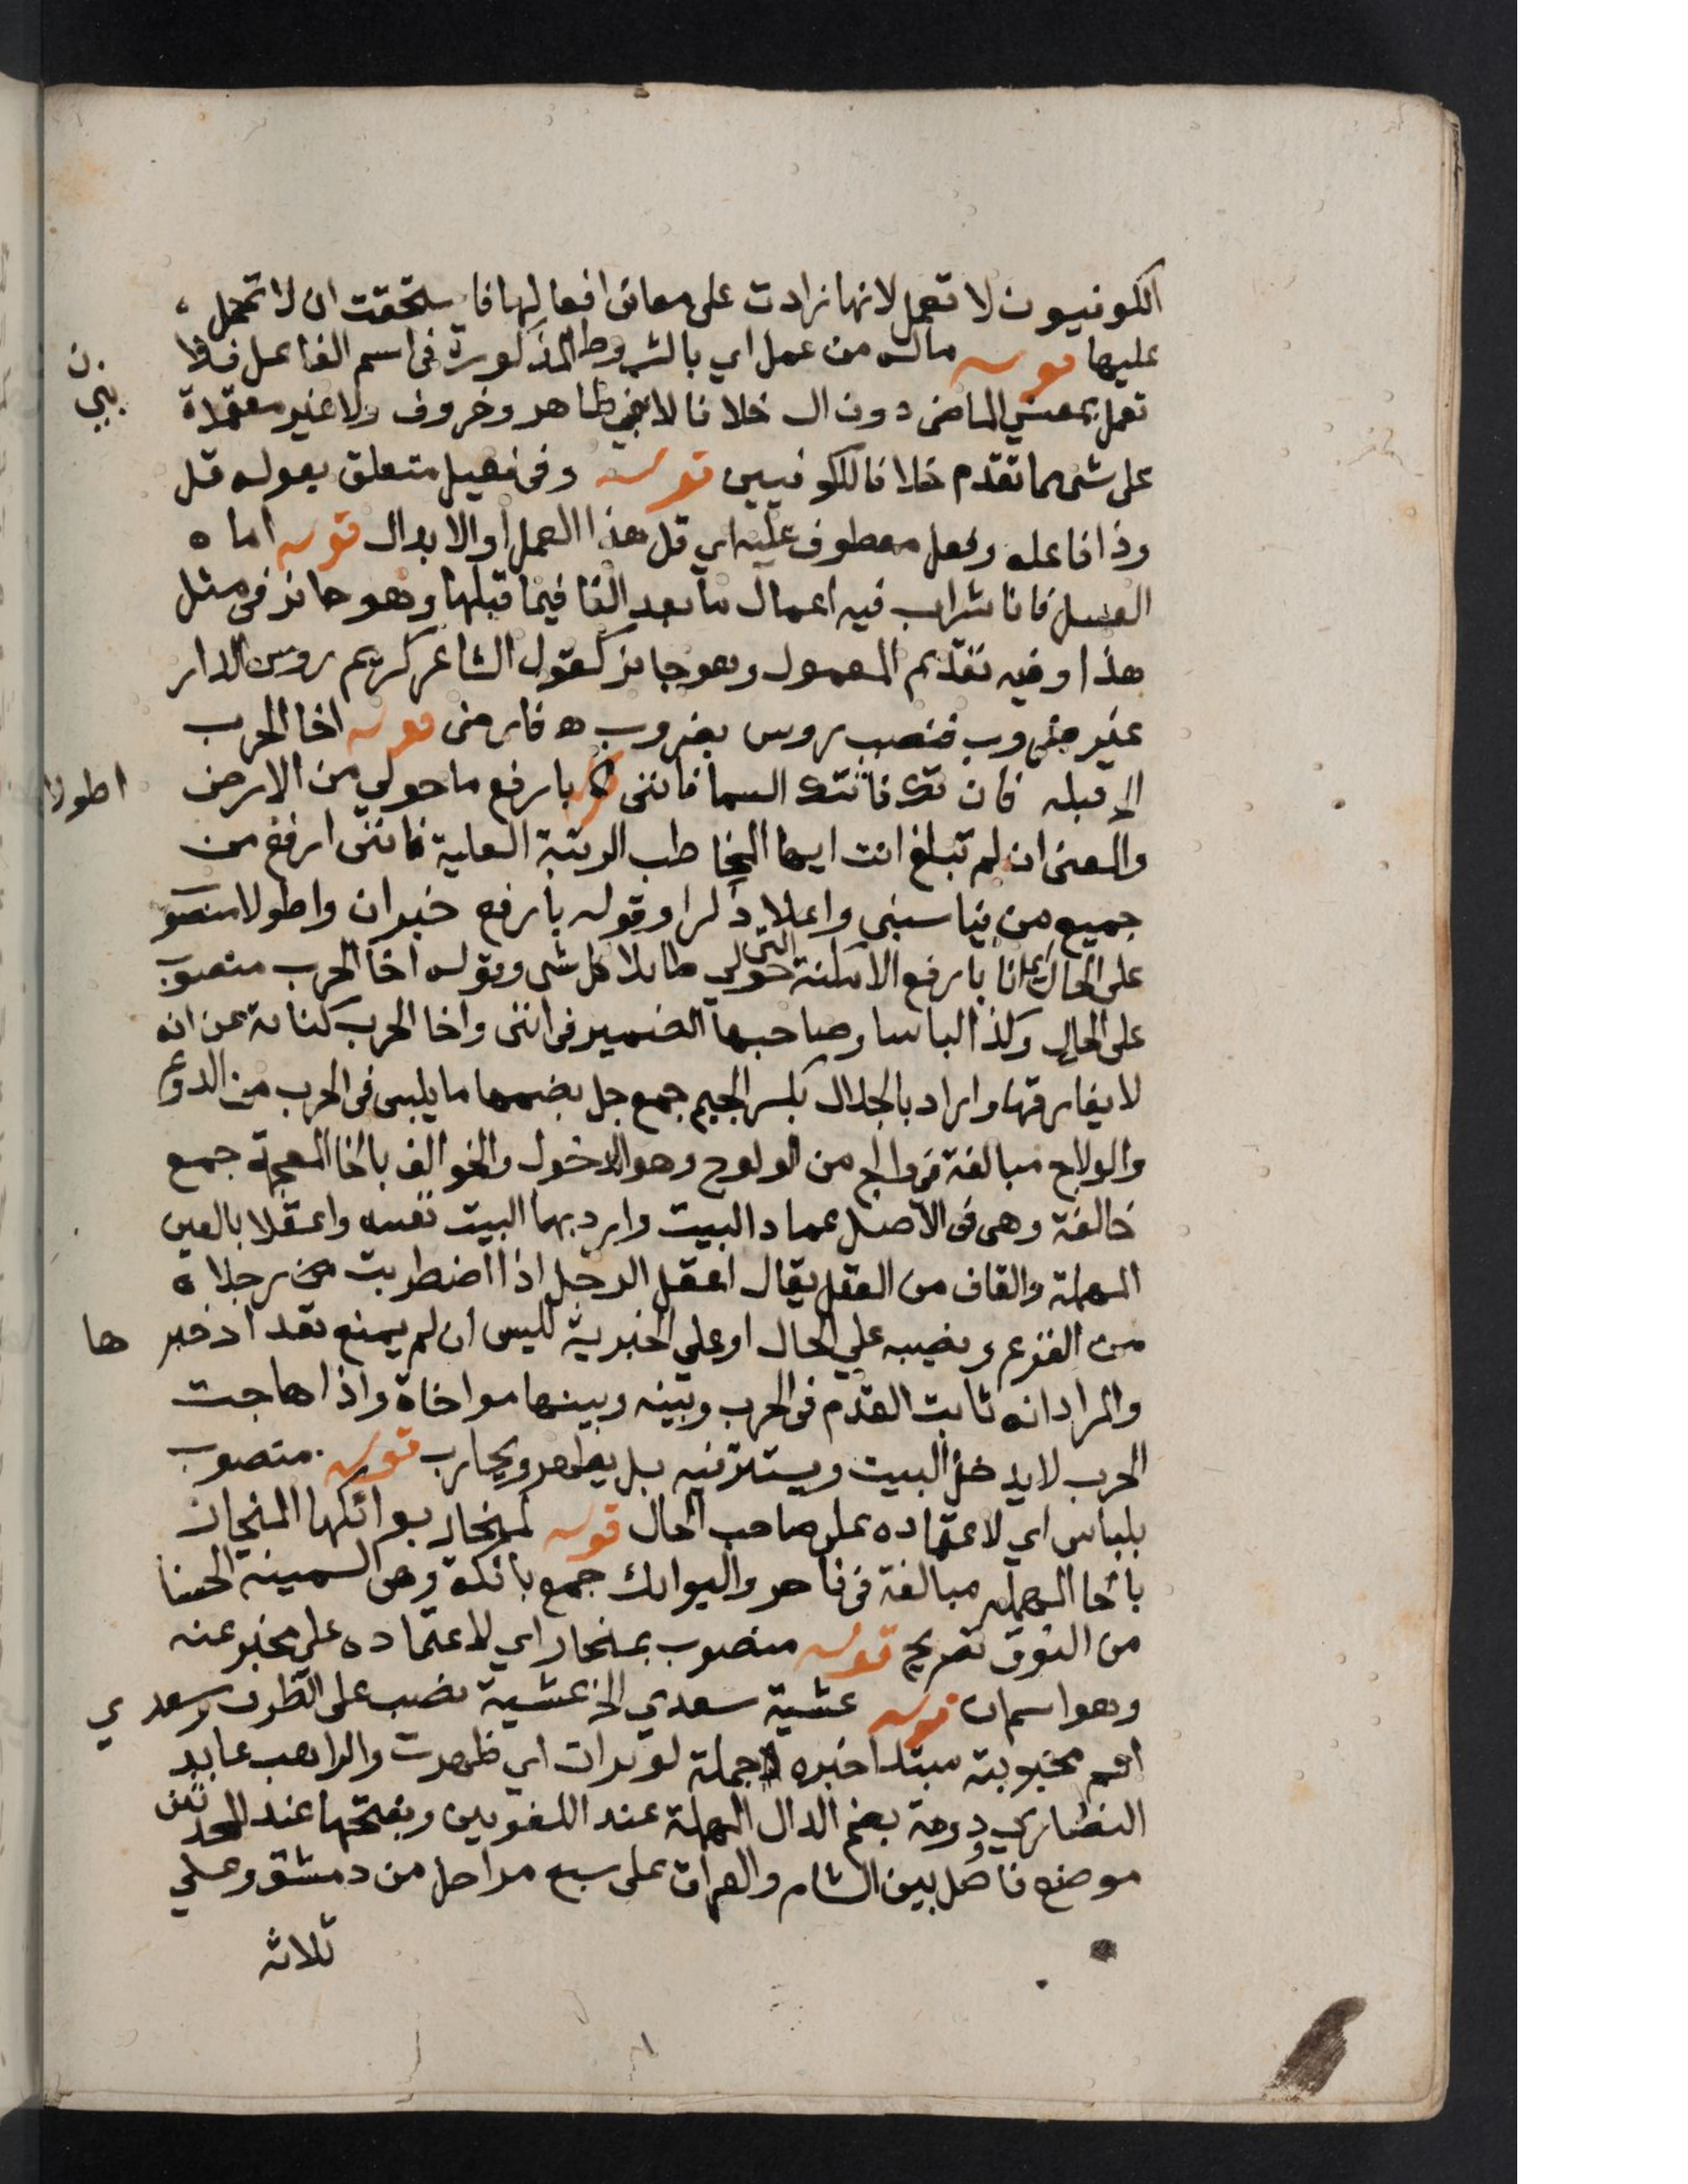 الكوفيون لا تعمل لانها زادت على معانى افعالها فاستحقت ان لا تحمل
عليها قوله ماله من عمل اي بالشروط المذكورة فى اسم الفاعل فلا
تعمل بمعنى الماضى دون ال خلافا لابنى طاهر وخروف ولا غير معتمدة
على شى مما تقدم خلافا للكوفيين قوله وفى فعيل متعلق بقوله قل
وذا فاعله وفعل معطوف عليه اي قل هذا العمل او الابدال قوله اما
العسل فانا شراب فيه اعمال ما بعد الفا فيما قبلها وهو جائز فى مثل
هذا وفيه تقديم المعمول وهو جايز كقول الشاعر كريم روس الدار
عير ضروب فنصب روس بضروب ه فارضى قوله اخا الحرب
الى قبله فان تك فاتتك السما فاننى بارفع ما حولي من الارض اطولا
والمعنى ان لم تبلغ انت ايها المخاطب الرتبة العلية فاننى ارفع من
جميع من يناسبنى واعلا ذكرا وقوله بارفع خبران واطولا منصو
على الحال اى انا بارفع الامكنة التى حولي طايلا كل شى وقوله اخا الحرب منصوب
على الحال وكذا لباسا وصاحبها الضمير فى اننى واخا الحرب كناية عن انه
لا يفارقها واراد بالجلال بكسر الجيم جمع جل بضمها ما يلبس فى الحرب من الدوع
والولاج مبالغة فى والج من الولوج وهو الدخول والخوالف بالخا المعجمة جمع
خالفة وهى فى الاصل عماد البيت واريد بهما البيت نفسه واعقلا بالعين
المهملة والقاف من العقل يقال اعقل الرجل اذا اضطربت رجلاه
من الفزع ونصبه على الحال او على الخبرية لليس ان لم يمنع تعدد خبرها
والمراد انه ثابت القدم فى الحرب وبينه وبينها مواخاة واذا هاجت
الحرب لا يدخل البيت ويستتر فيه بل يظهر ويحارب قوله منصوب
بلباس اي لاعتماده على صاحب الحال قوله لمنحار بوائكها المنحار
بالحا المهملة مبالغة فى ناحر والبوائك جمع بائكة وهى السمينة الحسنا
من النوق تصريح قوله منصوب بمنحار اي لاعتماده على مخبر عنه
وهو اسم ان قوله عشية سعدي الخ عشية نصب على الظرف وسعدي
اسم محبوبته مبتدا خبره جملة لو ترات اي ظهرت والراهب عابد
النصاري ودومة بضم الدال المهملة عند اللغويين وبفتحها عند المحدثين
موضع فاصل بين الشام والعراق على سبع مراحل من دمشق وعلي
ثلاثه